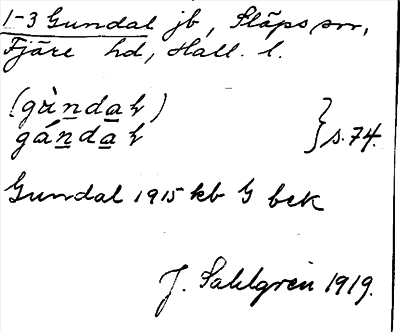 1-3 Gundal jb, Släps sn,
Fjäre hd, Hall. l.
(gùndaḷ)
gándaḷ } s. 74.
Gundal 1915 kb G bek
J. Sahlgren 1919.